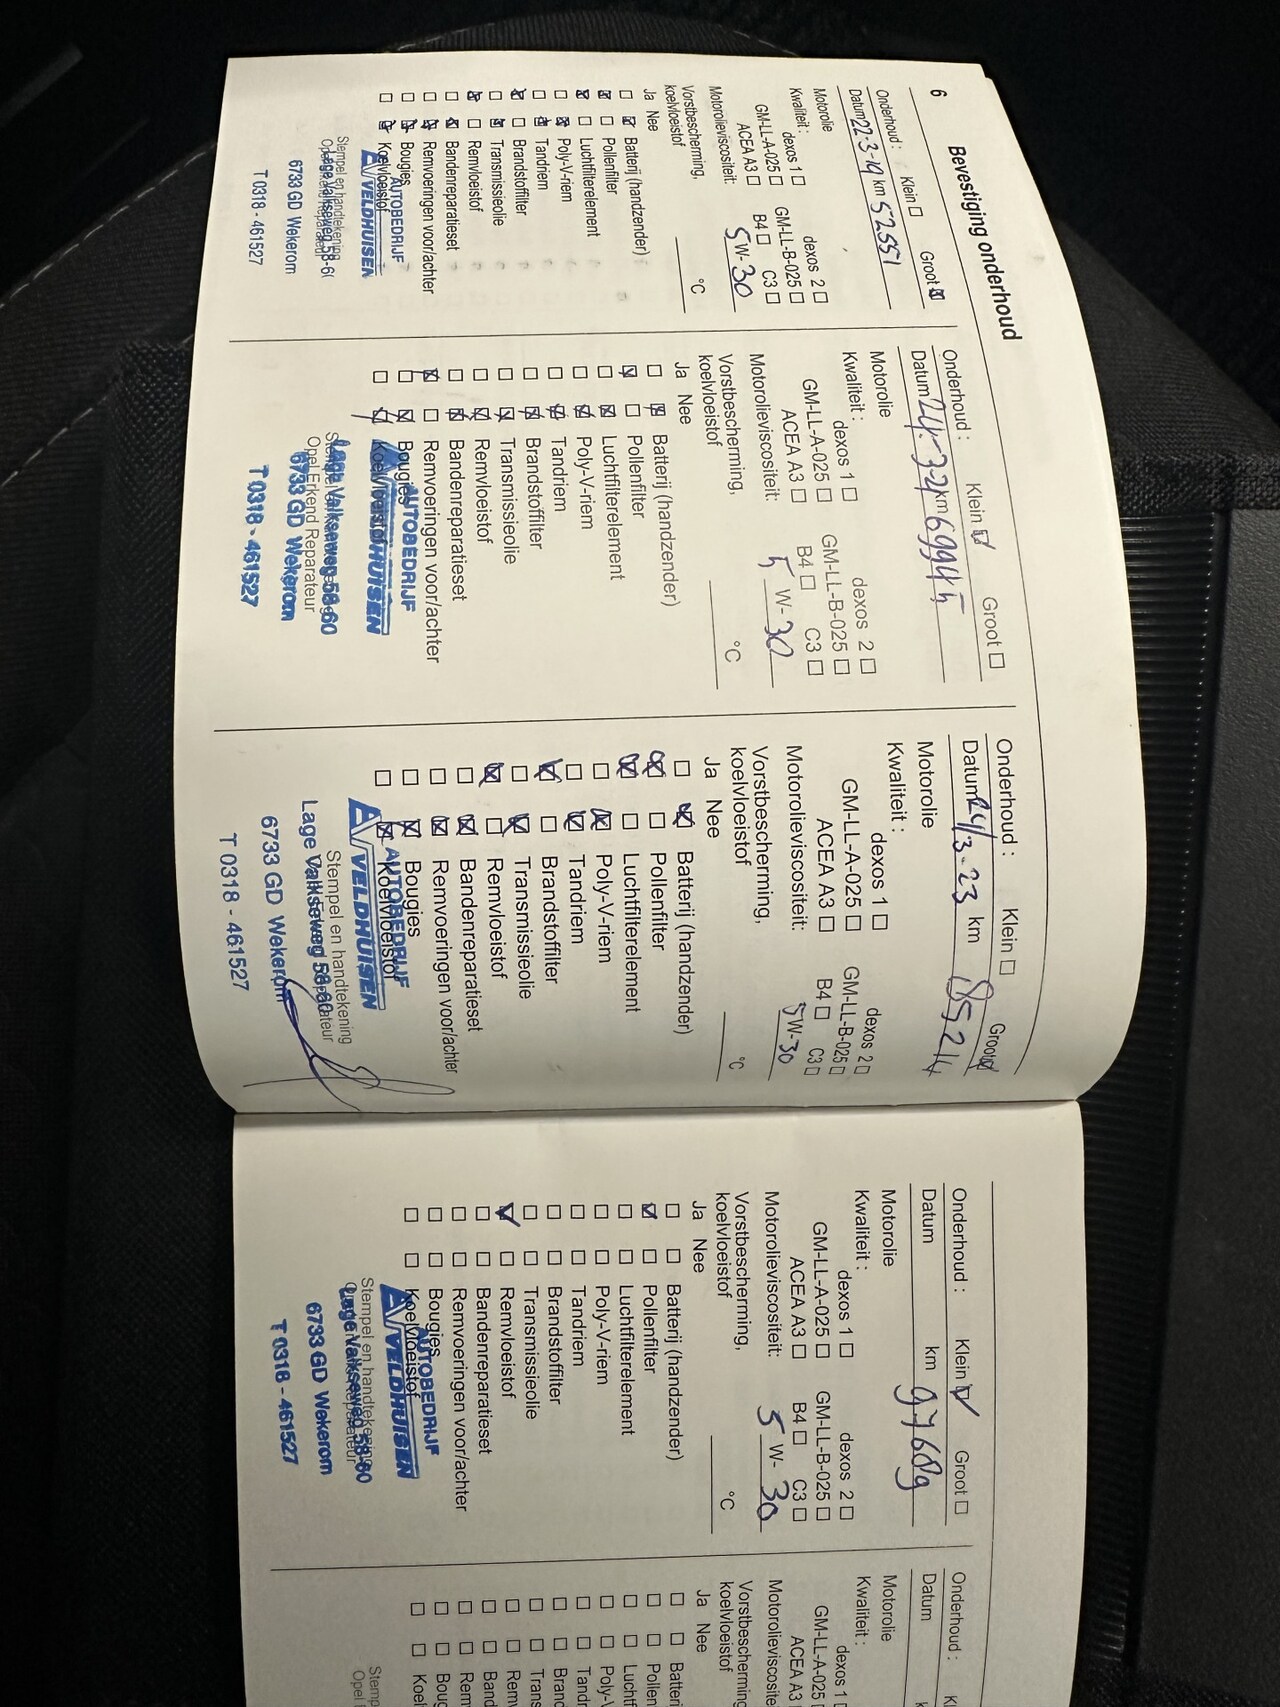 6
Bevestiging onderhoud
Onderhoud : Klein ☐ Groot ☒
Datum 22-3-19 km 52551
Motorolie
Kwaliteit : dexos 1 ☐ dexos 2 ☐
GM-LL-A-025 ☐ GM-LL-B-025 ☐
ACEA A3 ☐ B4 ☐ C3 ☐
Motorolieviscositeit: 5 W- 30
Vorstbescherming,
koelvloeistof °C
Ja Nee
☐ ☒ Batterij (handzender)
☒ ☐ Pollenfilter
☒ ☐ Luchtfilterelement
☐ ☒ Poly-V-riem
☐ ☒ Tandriem
☒ ☐ Brandstoffilter
☐ ☒ Transmissieolie
☒ ☐ Remvloeistof
☐ ☒ Bandenreparatieset
☐ ☒ Remvoeringen voor/achter
☐ ☒ Bougies
☐ ☒ Koelvloeistof
AUTOBEDRIJF
VELDHUISEN
Stempel en handtekening
Lage Valkseweg 58-6
6733 GD Wekerom
T 0318 - 461527
Onderhoud : Klein ☑ Groot ☐
Datum 24-3-21 km 69945
Motorolie
Kwaliteit : dexos 1 ☐ dexos 2 ☐
GM-LL-A-025 ☐ GM-LL-B-025 ☐
ACEA A3 ☐ B4 ☐ C3 ☐
Motorolieviscositeit: 5 W- 30
Vorstbescherming,
koelvloeistof °C
Ja Nee
☐ ☒ Batterij (handzender)
☑ ☐ Pollenfilter
☐ ☒ Luchtfilterelement
☐ ☒ Poly-V-riem
☐ ☒ Tandriem
☐ ☒ Brandstoffilter
☐ ☒ Transmissieolie
☐ ☒ Remvloeistof
☐ ☒ Bandenreparatieset
☒ ☐ Remvoeringen voor/achter
☐ ☒ Bougies
☐ ☒ Koelvloeistof
AUTOBEDRIJF
VELDHUISEN
Lage Valkseweg 58-60
Opel Erkend Reparateur
6733 GD Wekerom
T 0318 - 461527
Onderhoud : Klein ☐ Groot ☒
Datum 24/3-23 km 85214
Motorolie
Kwaliteit : dexos 1 ☐ dexos 2 ☐
GM-LL-A-025 ☐ GM-LL-B-025 ☐
ACEA A3 ☐ B4 ☐ C3 ☐
Motorolieviscositeit: 5 W- 30
Vorstbescherming,
koelvloeistof °C
Ja Nee
☐ ☒ Batterij (handzender)
☒ ☐ Pollenfilter
☒ ☐ Luchtfilterelement
☐ ☒ Poly-V-riem
☐ ☒ Tandriem
☒ ☐ Brandstoffilter
☐ ☒ Transmissieolie
☒ ☐ Remvloeistof
☐ ☒ Bandenreparatieset
☐ ☒ Remvoeringen voor/achter
☐ ☒ Bougies
☐ ☒ Koelvloeistof
AUTOBEDRIJF
VELDHUISEN
Stempel en handtekening
Lage Valkseweg 58-60
6733 GD Wekerom
T 0318 - 461527
Onderhoud : Klein ☑ Groot ☐
Datum km 97689
Motorolie
Kwaliteit : dexos 1 ☐ dexos 2 ☐
GM-LL-A-025 ☐ GM-LL-B-025 ☐
ACEA A3 ☐ B4 ☐ C3 ☐
Motorolieviscositeit: 5 W- 30
Vorstbescherming,
koelvloeistof °C
Ja Nee
☐ ☐ Batterij (handzender)
☑ ☐ Pollenfilter
☐ ☐ Luchtfilterelement
☐ ☐ Poly-V-riem
☐ ☐ Tandriem
☐ ☐ Brandstoffilter
☐ ☐ Transmissieolie
☑ ☐ Remvloeistof
☐ ☐ Bandenreparatieset
☐ ☐ Remvoeringen voor/achter
☐ ☐ Bougies
☐ ☐ Koelvloeistof
AUTOBEDRIJF
VELDHUISEN
Stempel en handtekening
Lage Valkseweg 58-60
6733 GD Wekerom
T 0318 - 461527
Onderhoud : Kl
Datum
Motorolie
Kwaliteit : dexos 1
GM-LL-A-025
ACEA A3
Motorolieviscosite
Vorstbescherming,
koelvloeistof
Ja Nee
☐ ☐ Batteri
☐ ☐ Pollen
☐ ☐ Luchtf
☐ ☐ Poly-V
☐ ☐ Tandr
☐ ☐ Brand
☐ ☐ Trans
☐ ☐ Remv
☐ ☐ Band
☐ ☐ Rem
☐ ☐ Boug
☐ ☐ Koel
Stemp
Opel